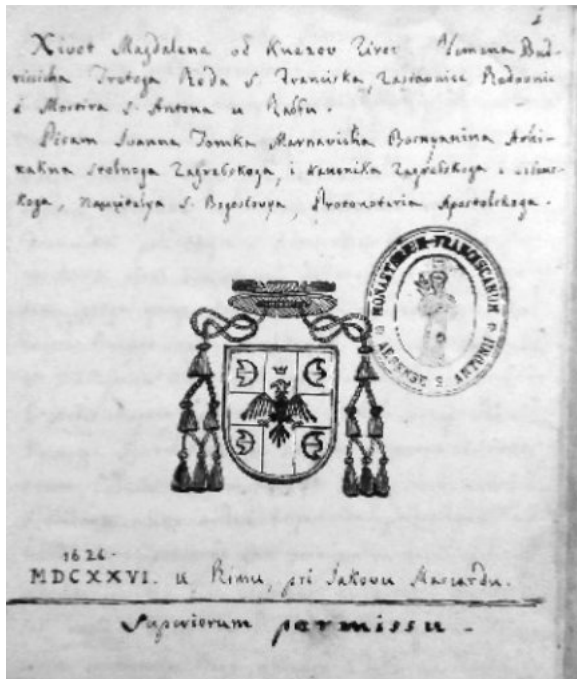 1
Xivot Magdalena od Knezov Zirov Vimena Bud-
richicha Tretoga Reda S. Franciska,
S. Antona u Rabbu.
Pisam Ivanna Tomka Marnavicha Bosnyanina Arhi-
Zagrabskoga, i Kanonika Zagrabskoga
koga, Nauçitelya S. Bogoslovya, Protonotaria Apostolskoga.
MONASTERIUM FRANCISCANUM
ARBENSE S. ANTONII
1626
MDCXXVI. u Rimu, pri Jakovu Mascardu.
Superiorum permissu.